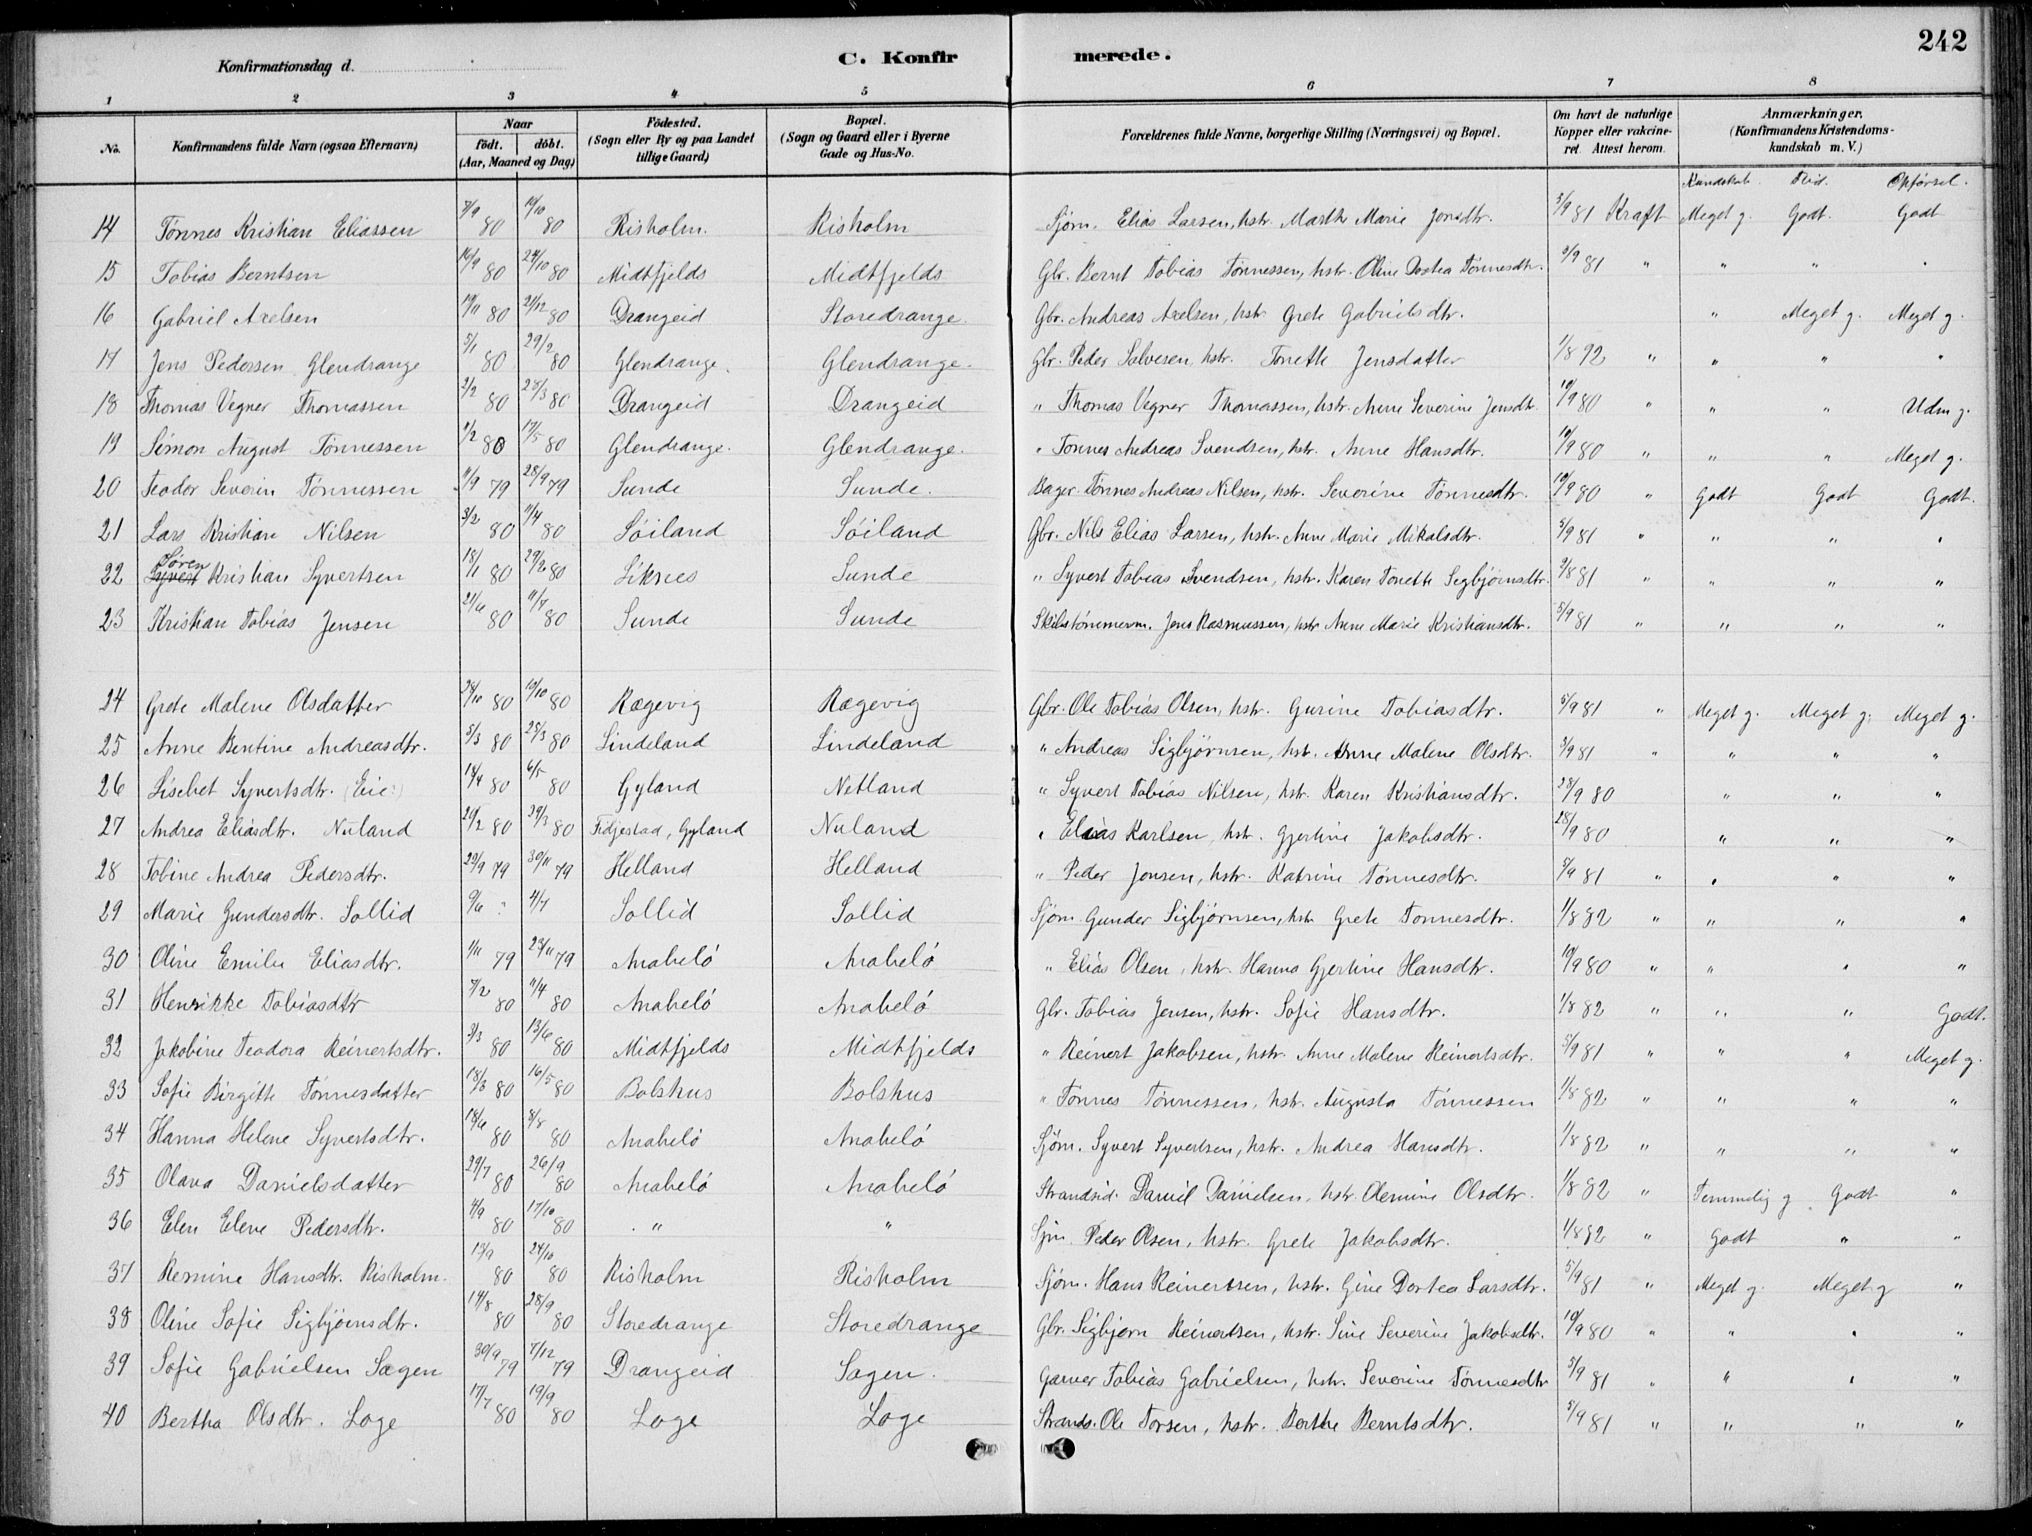 242
Konfirmationsdag d. C. Konfirmerede.
1 2 3 4 5 6 7 8
No. Konfirmandens fulde Navn (ogsaa Efternavn) Naar født. døbt. (Aar, Maaned og Dag) Fødested. (Sogn eller By og paa Landet tillige Gaard) Bopæl. (Sogn og Gaard eller i Byerne Gade og Hus-No. Forældrenes fulde Navne, borgerlige Stilling (Næringsvei) og Bopæl. Om havt de naturlige Kopper eller vakcineret. Attest herom. Anmærkninger. (Konfirmandens Kristendomskundskab m. V.)
Kundskab. Flid. Opførsel.
14 Tønnes Kristian Eliassen 7/9 80 10/10 80 Risholm. Risholm Sjøm. Elias Larsen, hstr. Marthe Marie Jensdtr. 5/9 81 Kraft Meget g. Godt. Godt
15 Tobias Berntsen 16/9 80 24/10 80 Midtfjelds Midtfjelds Gbr. Bernt Tobias Tønnessen, hstr. Oline Dortea Tønnesdtr. 5/9 81 " " " "
16 Gabriel Axelsen 19/11 80 21/12 80 Drangeid Storedrange. Gbr. Andreas Axelsen, hstr. Grete Gabrielsdtr. " Meget g. Meget g.
17 Jens Pedersen Glendrange 5/1 80 29/2 80 Glendrange. Glendrange. Gbr. Peder Salvesen, hstr. Tonette Jensdatter 1/8 92 " " " "
18 Thomas Vegner Thomassen 2/2 80 28/3 80 Drangeid Drangeid " Thomas Vegner Thomassen, hstr. Anne Severine Jensdtr. 10/9 80 " " " Udm g.
19 Simon August Tønnessen 1/2 80 17/5 80 Glendrange. Glendrange. " Tønnes Andreas Svendsen, hstr. Anne Hansdtr. 10/9 80 " " " Meget g.
20 Teodor Severin Tønnessen 11/9 79 28/9 79 Sunde Sunde. Bager Tønnes Andreas Nilsen, hstr. Severine Tønnesdtr. 10/9 80 " Godt Godt Godt.
21 Lars Kristian Nilsen 3/2 80 11/4 80 Søiland Søiland Gbr. Nils Elias Larsen, hstr. Anne Marie Mikalsdtr. 5/9 81 " " " "
22 Søren Syvert Kristian Syvertsen 18/1 80 29/2 80 Liknes Sunde " Syvert Tobias Svendsen, hstr. Karen Tonette Sigbjørnsdtr. 9/8 81 " " " "
23 Kristian Tobias Jensen 21/6 80 11/7 80 Sunde Sunde Skibstømmerm. Jens Rasmussen, hstr. Anne Marie Kristiansdtr. 5/9 81 " " " "
24 Grete Malene Olsdatter 80 10/10 80 Rægevig Rægevig Gbr. Ole Tobias Olsen, hstr. Gurine Tobiasdtr. 5/9 81 " Meget g. Meget g. Meget g.
25 Anne Bentine Andreasdtr. 5/3 80 25/3 80 Lindeland Lindeland " Andreas Sigbjørnsen, hstr. Anne Malene Olsdtr. 5/9 81 " " " "
26 Lisebet Syvertsdtr. (Eie:) 14/4 80 6/5 80 Gyland Netland " Syvert Tobias Nilsen, hstr. Karen Kristiansdtr. 28/9 80 " " "
27 Andrea Eliasdtr. Nuland 20/2 80 29/3 80 Fidjestad, Gyland Nuland " Elias Karlsen, hstr. Gjertine Jakobsdtr. 28/9 80 " " "
28 Tobine Andrea Pedersdtr. 20/9 79 30/11 79 Helland Helland " Peder Jensen, hstr. Katrine Tønnesdtr. 5/9 81 " " " "
29 Marie Gundersdtr. Sollid 9/6 ? 4/7 Sollid Sollid Sjøm. Gunder Sigbjørnsen, hstr. Grete Tønnesdtr. 1/8 82 " " " "
30 Oline Emilie Eliasdtr. 1/11 79 23/11 79 Anabelø Anabelø " Elias Olsen, hstr. Hanna Gjertine Hansdtr. 10/9 80 " " " "
31 Henrikke Tobiasdtr 7/2 80 11/4 80 Anabelø Anabelø Gbr. Tobias Jensen, hstr. Sofie Hansdtr. 1/8 82 " " " Godt.
32 Jakobine Teodora Reinertsdtr. 3/3 80 13/6 80 Midtfjelds Midtfjelds " Reinert Jakobsen, hstr. Anne Malene Reinertsdtr. 5/9 81 " " " Meget g.
33 Sofie Birgitte Tønnesdatter 18/3 80 16/5 80 Bolshus Bolshus " Tønnes Tønnessen, hstr. Augusta Tønnessen 1/8 82 " " " "
34 Hanna Helene Syvertsdtr. 18/6 80 8/8 80 Anabelø Anabelø Sjøm. Syvert Syvertsen, hstr. Andrea Hansdtr. 1/8 82 " " " "
35 Olava Danielsdatter 29/7 80 26/9 80 Anabelø Anabelø Strandsid. Daniel Danielsen, hstr. Olemine Olsdtr. 1/8 82 " Temmelig g. Godt "
36 Elen Elene Pedersdtr. 4/9 80 17/10 80 " " Sjm. Peder Olsen, hstr. Grete Jakobsdtr. 1/8 82 " Godt " "
37 Remine Hansdtr. Risholm. 13/9 80 24/10 80 Risholm Risholm Sjøm. Hans Reinertsen, hstr. Gine Dortea Larsdtr. 5/9 81 " Meget g. Meget g "
38 Oline Sofie Sigbjørnsdtr. 14/8 80 28/9 80 Storedrange Storedrange Gbr. Sigbjørn Reinertsen, hstr. Sine Severine Jakobsdtr. 10/9 80 " " " "
39 Sofie Gabrielsen Sagen 30/9 79 7/12 79 Drangeid Sagen. Garver Tobias Gabrielsen, hstr. Severine Tønnesdtr 5/9 81 " " " "
40 Bertha Olsdtr. Loge 17/7 80 19/9 80 Loge Loge Strands. Ole Torsen, hstr. Berthe Berntsdtr. 5/9 81 " " " "